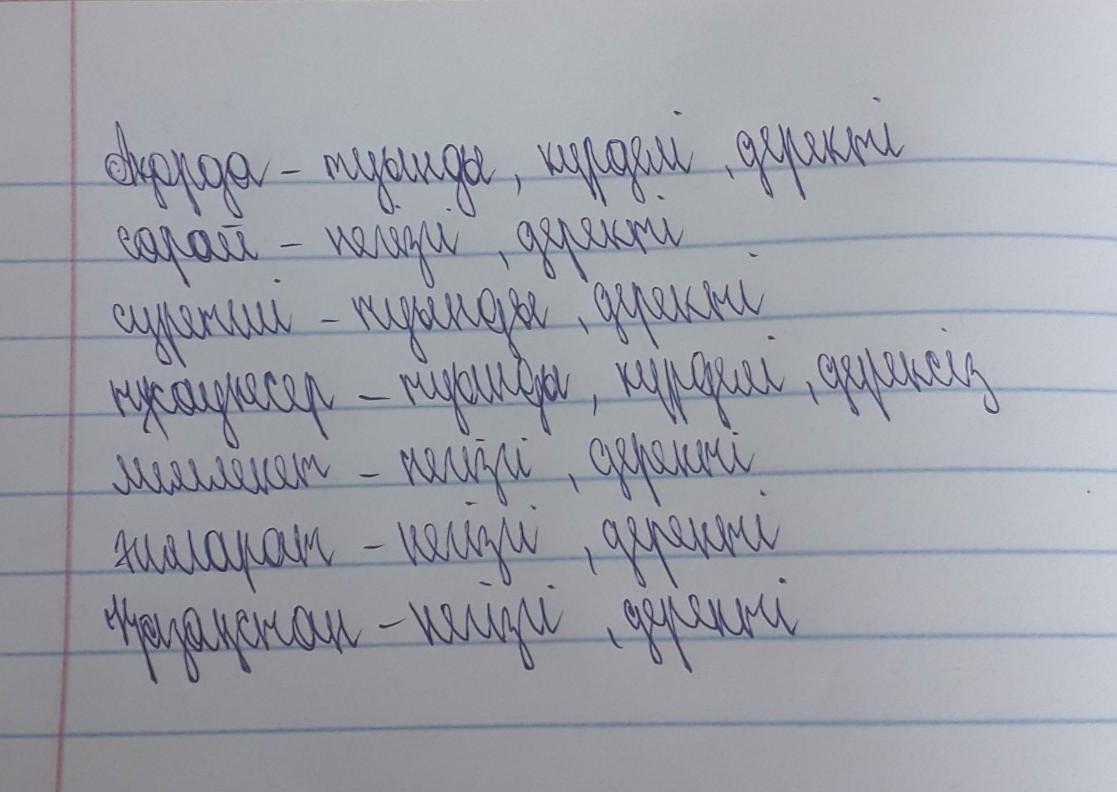 Ақорда – туынды, күрделі, деректі
сарай – негізгі, деректі
суретші – туынды, деректі
тұсаукесер – туынды, күрделі, дерексіз
мемлекет – негізгі, деректі
ғимарат – негізгі, деректі
Қазақстан – негізгі, деректі